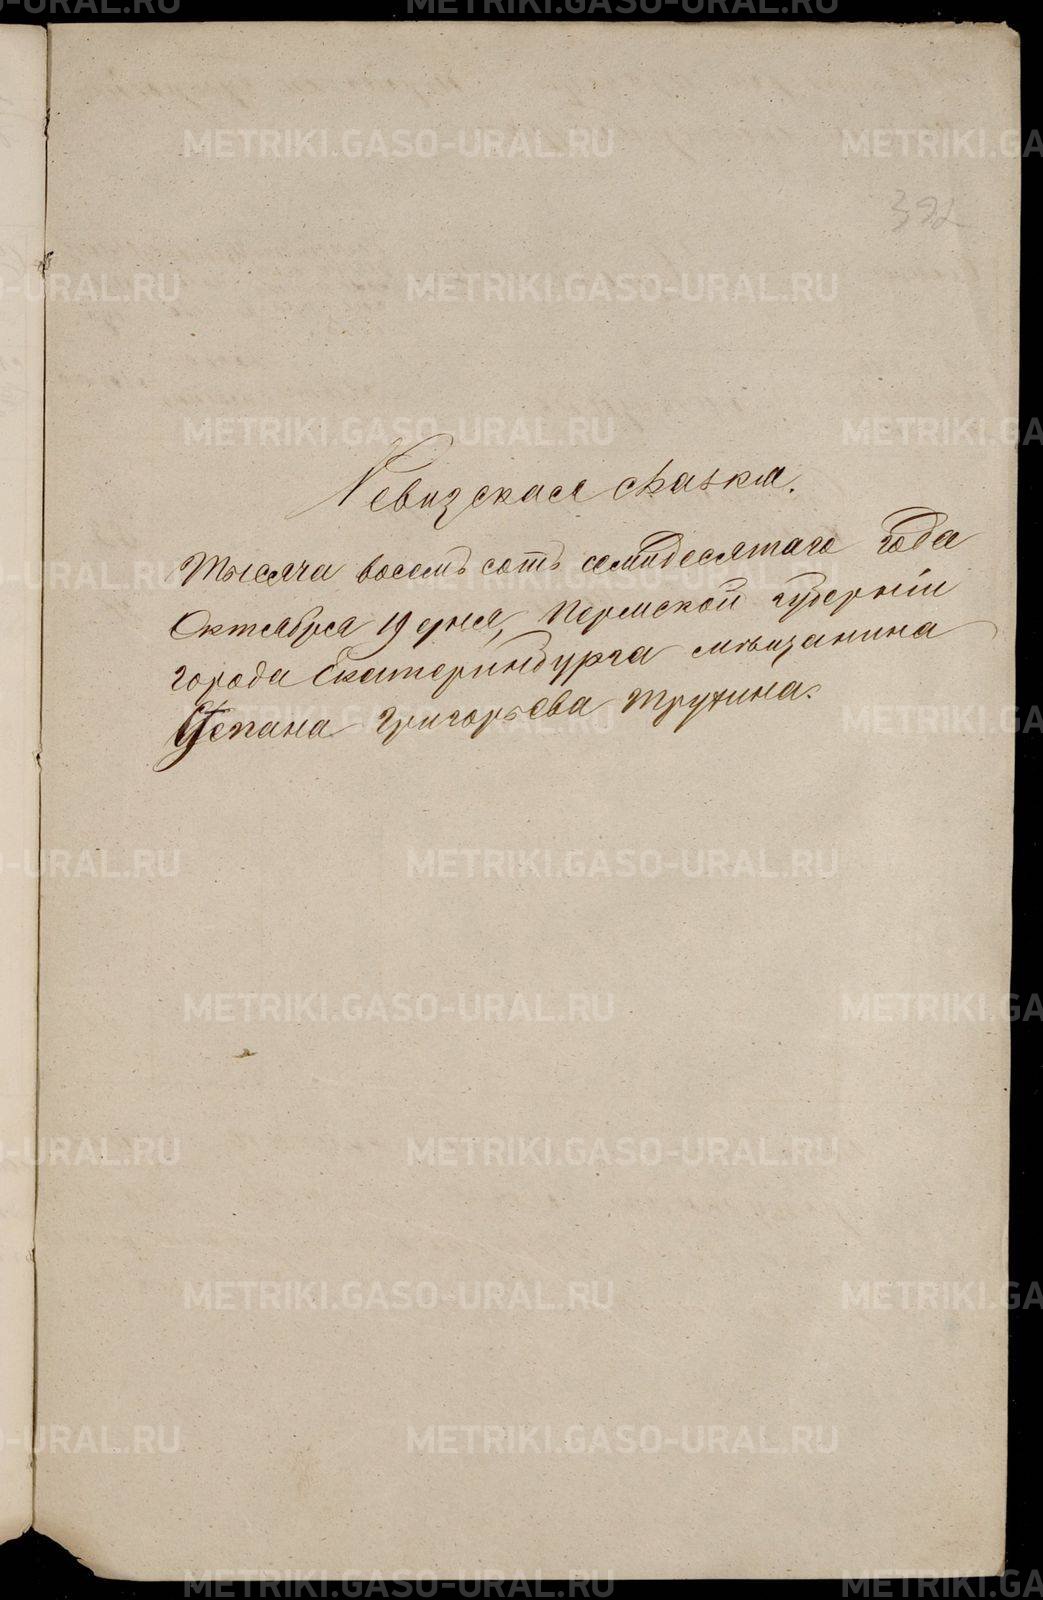 392
Ревизская сказка.
Тысяча восемь сотъ семидесятаго года
Октября 19 дня, Пермской губернiи
города Екатеринбурга мѣщанина
Степана Григорьева Трухина.
METRIKI.GASO-URAL.RU